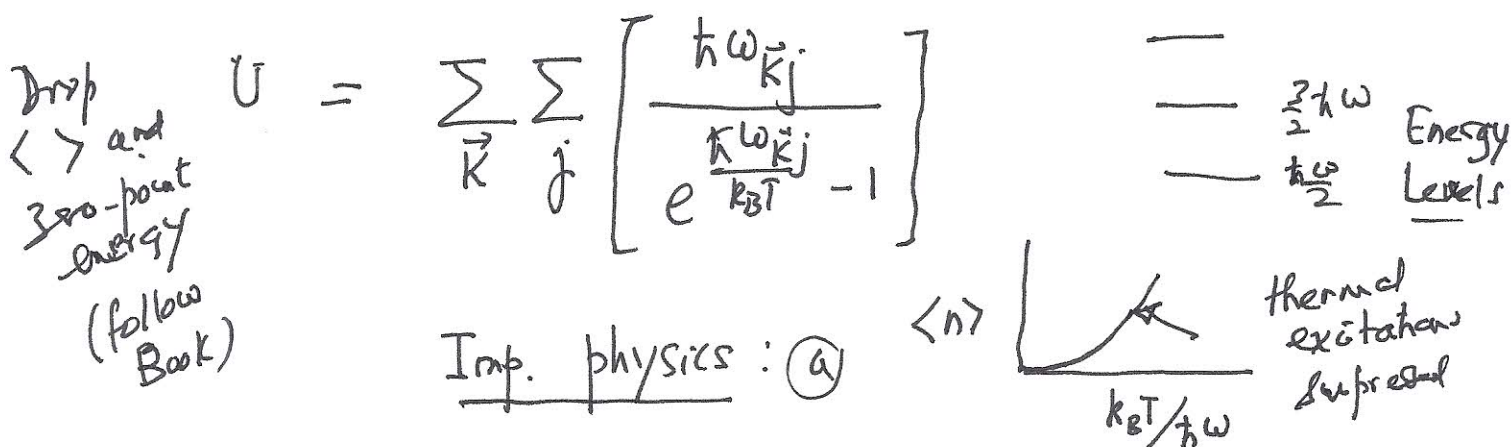 Drop
< > and
zero-point
energy
(follow
Book)
U = Σ_{\vec{K}} Σ_j [ ħω_{\vec{K}j} / ( e^{ħω_{\vec{K}j} / k_BT} - 1 ) ]
3/2 ħω
ħω/2
Energy
Levels
Imp. physics : (a)
<n>
k_BT/ħω
thermal
excitations